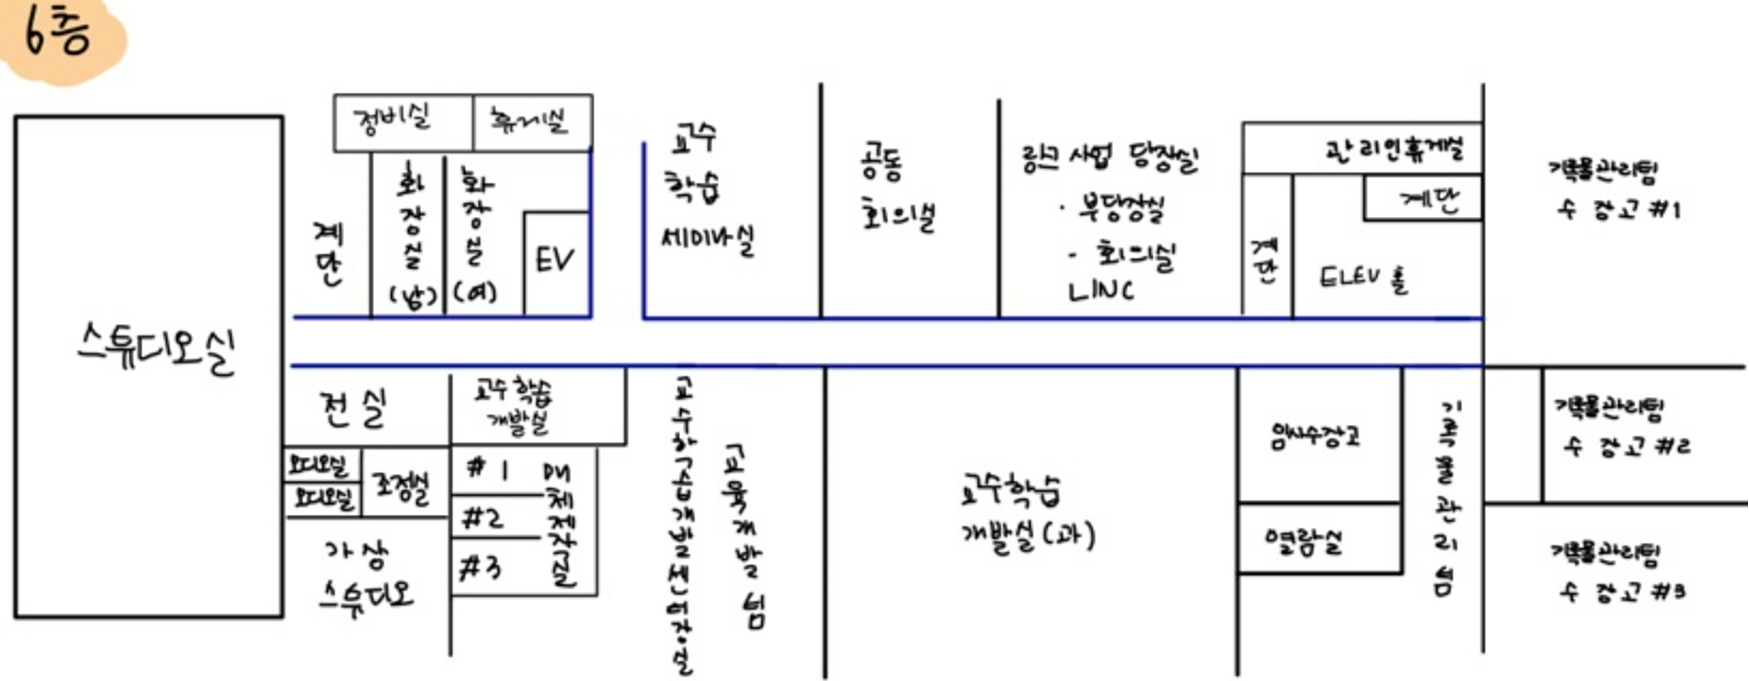 6층
정비실
휴게실
계단
화장실(남)
화장실(여)
EV
교수
학습
세미나실
공동
회의실
링크사업 단장실
· 부단장실
- 회의실
LINC
관리인휴게실
계단
계단
ELEV 홀
기록물관리팀
수 장고 #1
스튜디오실
전실
교수학습
개발실
오디오실
오디오실
조정실
#1
#2
#3
매체제작실
가상
스튜디오
교수학습개발센터장실
교육개발팀
교수학습
개발실(과)
임시수장고
열람실
기록물관리팀
기록물관리팀
수 장고 #2
기록물관리팀
수 장고 #3